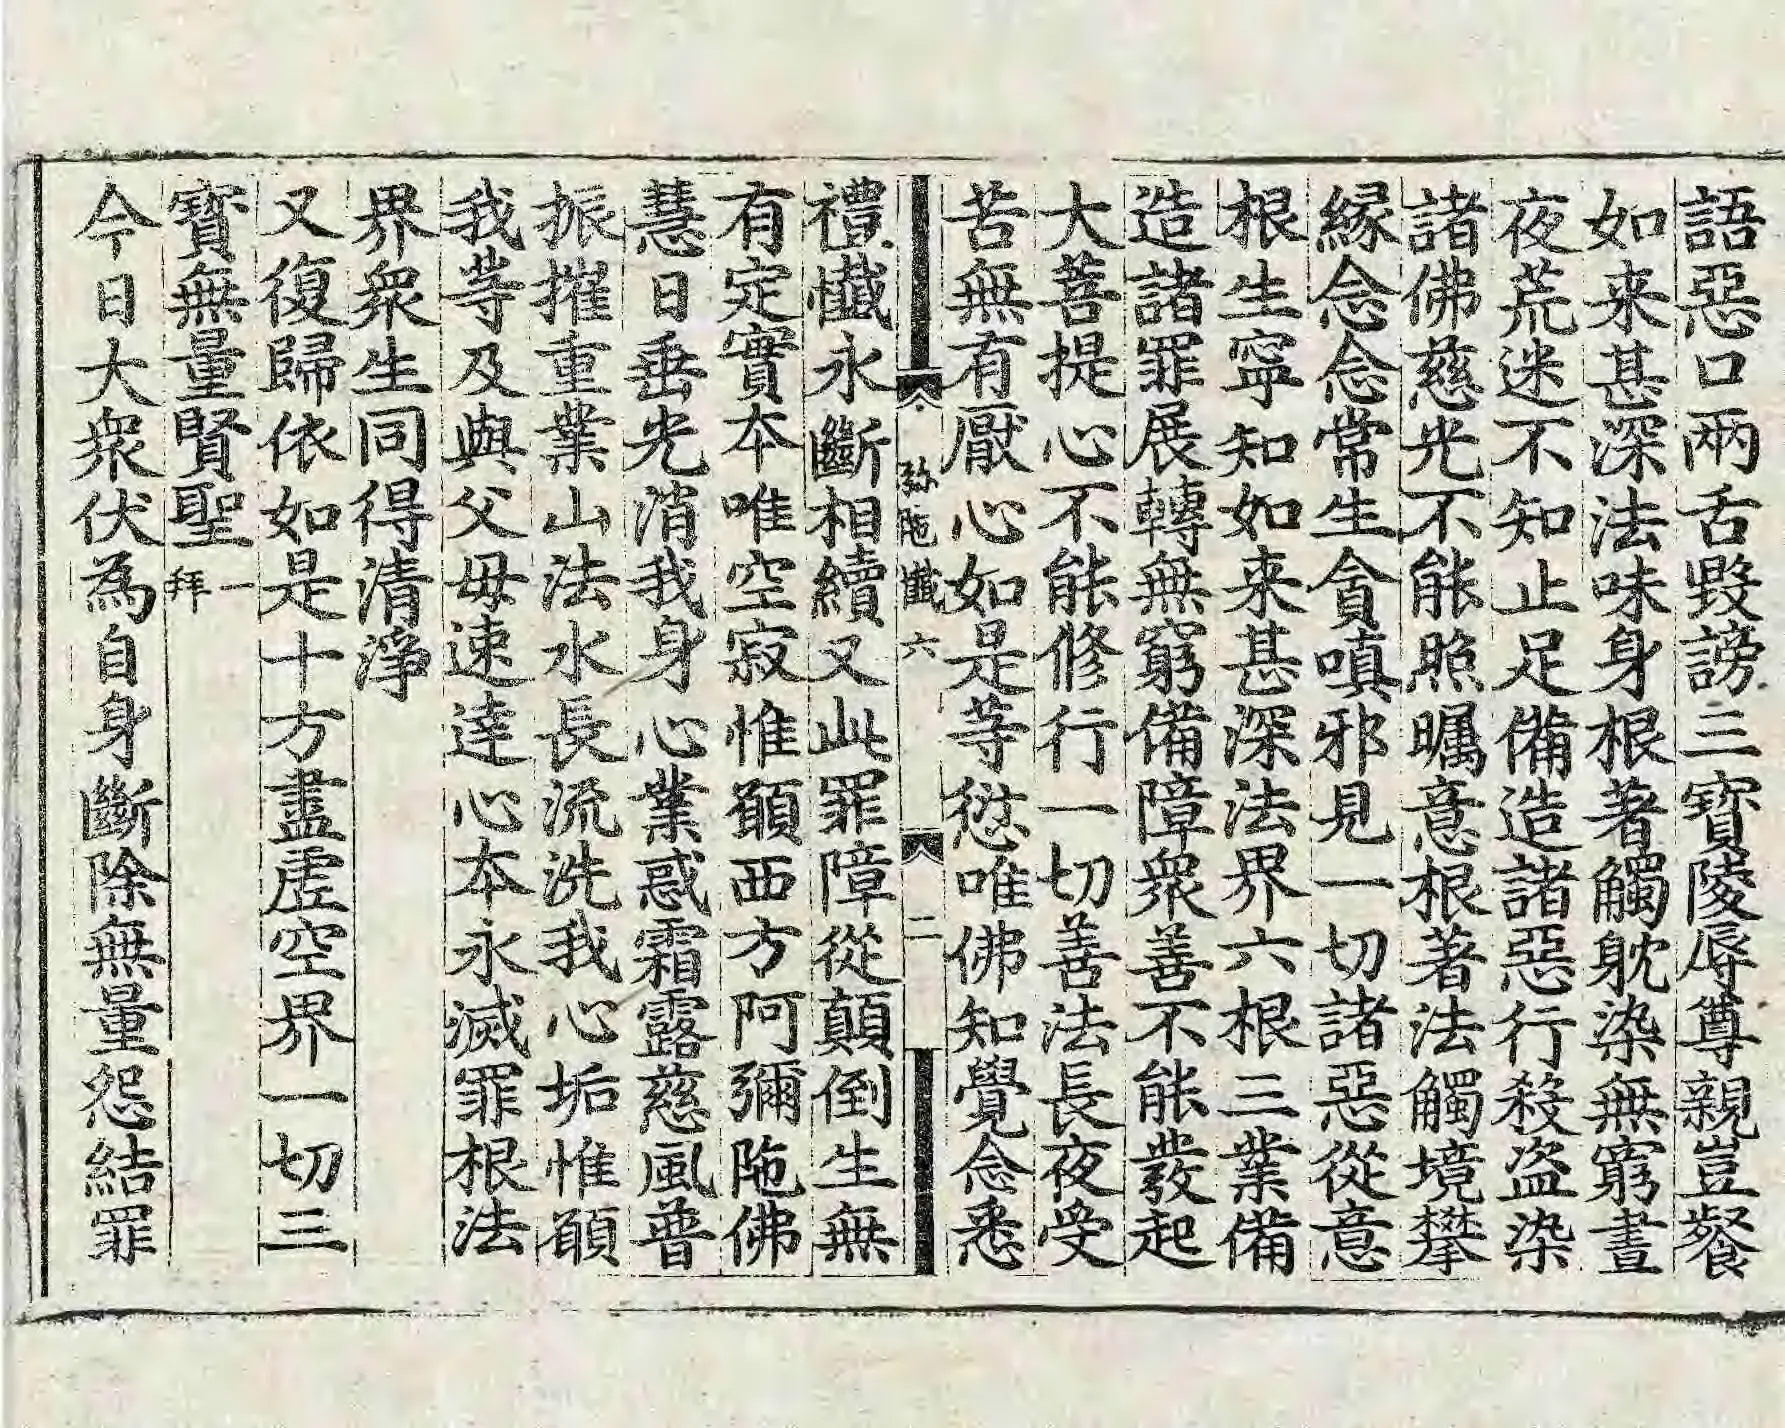 語惡口兩舌毀謗三寳陵辱尊親豈飱
如来甚深法味身根著觸躭染無窮晝
夜荒迷不知止足備造諸惡行殺盗染
諸佛慈光不能照矚意根著法觸境攀
縁念念常生貪嗔邪見一切諸惡從意
根生寧知如来甚深法界六根三業備
造諸罪展轉無窮備障衆善不能發起
大菩提心不能修行一切善法長夜受
苦無有厭心如是等愆唯佛知覺念悉
弥陁懺六 二
禮懺永斷相續又此罪障從顛倒生無
有定實本唯空寂惟願西方阿彌陁佛
慧日垂光消我身心業惑霜露慈風普
振摧重業山法水長流洗我心垢惟願
我等及與父母速達心本永滅罪根法
界衆生同得清淨
又復歸依如是十方盡虛空界一切三
寳無量賢聖一拜
今日大衆伏為自身斷除無量怨結罪